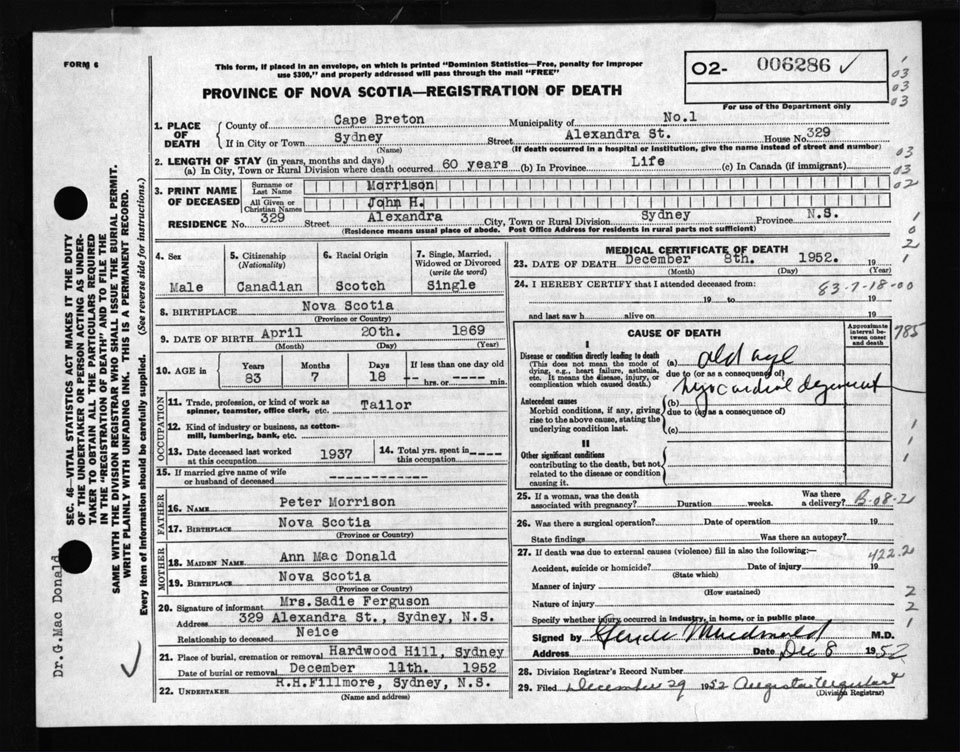 FORM 6
This form, if placed in an envelope, on which is printed "Dominion Statistics—Free, penalty for improper
use $300," and properly addressed will pass through the mail "FREE"
PROVINCE OF NOVA SCOTIA—REGISTRATION OF DEATH
O2- 006286 ✓
For use of the Department only
1. PLACE OF DEATH
County of Cape Breton Municipality of No.1
If in City or Town Sydney Street Alexandra St. House No. 329
(Name) (If death occurred in a hospital or institution, give the name instead of street and number)
2. LENGTH OF STAY (in years, months and days)
(a) In City, Town or Rural Division where death occurred 60 years (b) In Province Life (c) In Canada (if immigrant)
3. PRINT NAME OF DECEASED
Surname or Last Name Morrison
All Given or Christian Names John H.
RESIDENCE No. 329 Street Alexandra City, Town or Rural Division Sydney Province N.S.
(Residence means usual place of abode. Post Office Address for residents in rural parts not sufficient)
4. Sex Male
5. Citizenship (Nationality) Canadian
6. Racial Origin Scotch
7. Single, Married, Widowed or Divorced (write the word) Single
8. BIRTHPLACE Nova Scotia
(Province or Country)
9. DATE OF BIRTH April 20th. 1869
(Month) (Day) (Year)
10. AGE in Years 83 Months 7 Days 18 If less than one day hrs. or min.
OCCUPATION
11. Trade, profession, or kind of work as spinner, teamster, office clerk, etc. Tailor
12. Kind of industry or business, as cotton-mill, lumbering, bank, etc.
13. Date deceased last worked at this occupation 1937 14. Total yrs. spent in this occupation
15. If married give name of wife or husband of deceased
FATHER
16. NAME Peter Morrison
17. BIRTHPLACE Nova Scotia
(Province or Country)
MOTHER
18. MAIDEN NAME Ann Mac Donald
19. BIRTHPLACE Nova Scotia
(Province or Country)
20. Signature of informant Mrs. Sadie Ferguson
Address 329 Alexandra St., Sydney, N.S.
Relationship to deceased Neice
21. Place of burial, cremation or removal Hardwood Hill, Sydney
Date of burial or removal December 11th. 1952
22. UNDERTAKER R.H.Fillmore, Sydney, N.S.
(Name and address)
MEDICAL CERTIFICATE OF DEATH
23. DATE OF DEATH December 8th. 1952. 19
(Month) (Day) (Year)
24. I HEREBY CERTIFY that I attended deceased from:
83-7-18-00
19 to 19
and last saw h alive on 19
CAUSE OF DEATH
Approximate interval between onset and death
785
I
Disease or condition directly leading to death
(This does not mean the mode of dying, e.g., heart failure, asthenia, etc. It means the disease, injury, or complication which caused death.)
(a) old age
due to (or as a consequence of)
myocardial
Antecedent causes
Morbid conditions, if any, giving rise to the above cause, stating the underlying condition last.
(b)
due to (or as a consequence of)
(c)
II
Other significant conditions
contributing to the death, but not related to the disease or condition causing it.
25. If a woman, was the death associated with pregnancy? Duration weeks. Was there a delivery? B-08-2
26. Was there a surgical operation? Date of operation 19
State findings Was there an autopsy?
27. If death was due to external causes (violence) fill in also the following:— 422.2
Accident, suicide or homicide? Date of injury 19
(State which)
Manner of injury
(How sustained)
Nature of injury
Specify whether injury occurred in industry, in home, or in public place
Signed by Macdonald M.D.
Address Date Dec 8 1952
28. Division Registrar's Record Number
29. Filed December 29 1952 Augusta Urquhart
(Division Registrar)
SEC. 46—VITAL STATISTICS ACT MAKES IT THE DUTY
OF THE UNDERTAKER OR PERSON ACTING AS UNDER-
TAKER TO OBTAIN ALL THE PARTICULARS REQUIRED
IN THE "REGISTRATION OF DEATH" AND TO FILE THE
SAME WITH THE DIVISION REGISTRAR WHO SHALL ISSUE THE BURIAL PERMIT.
WRITE PLAINLY WITH UNFADING INK. THIS IS A PERMANENT RECORD.
Every item of information should be carefully supplied. (See reverse side for instructions.)
Dr.G.Mac Donald